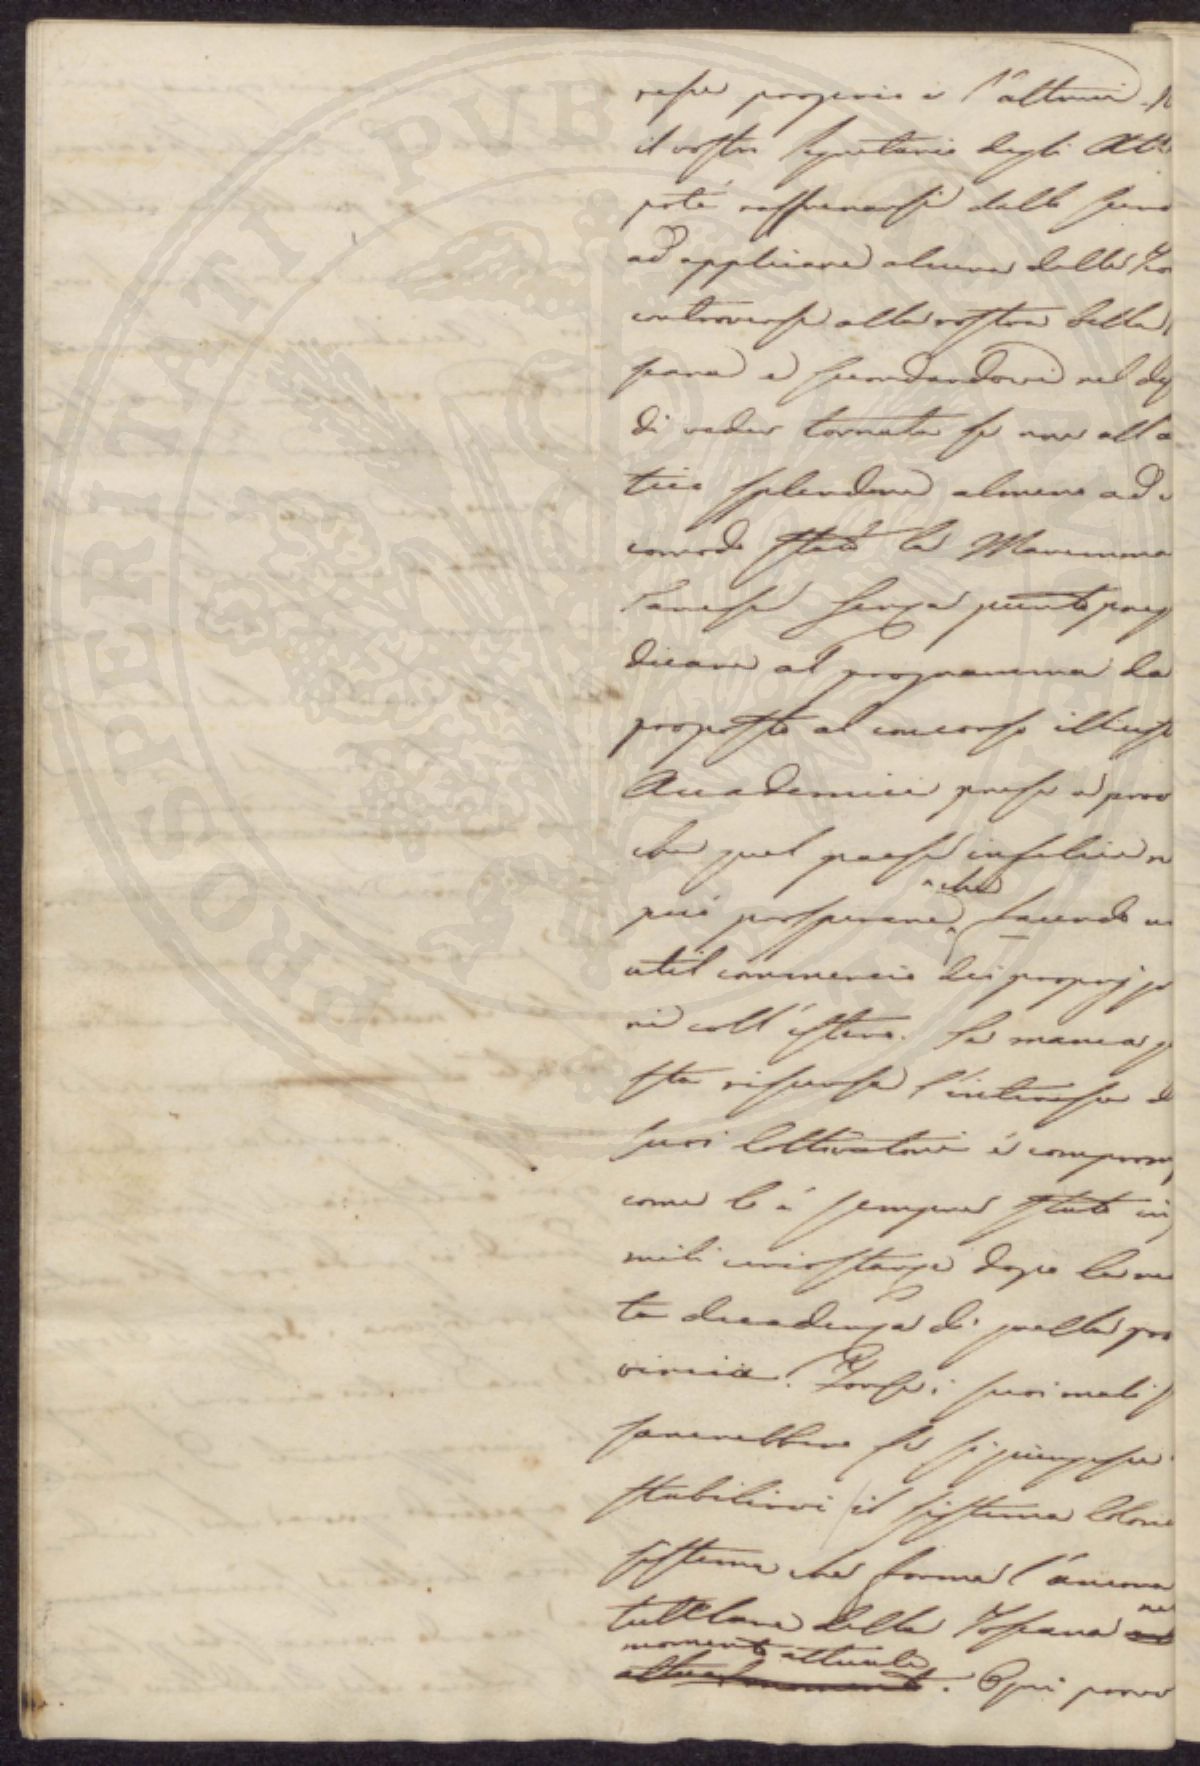 PROSPERITATI PUBLICAE
resse proprio e l'altrui. N
il vostro Segretario degli Atti
poté raffrenarsi dallo
ad applicare alcuna delle
controverse alla nostra bella
scana e secondandovi nel de
di veder tornata se non all'a
tico splendore almeno ad
comodo stato la Maremma
sanese senza punto preg
dicare al programma da
proposto al concorso illustr
Accademici prese a prov
che quel paese infelice n
può prosperare che facendo u
util commercio dei proprj ge
ri coll'estero. Se manca q
sta risorsa l'interesse d
suoi Coltivatori è comprom
come lo è sempre stato in
mili circostanze dopo la no
ta decadenza di quella pro
vincia. Forse i suoi mali s
sanerebbero se si giungesse
stabilirvi il sistema Colonic
sistema che forma l'ancora
tutelare della Toscana nel
momento attuale
attual momento. Ogni prov